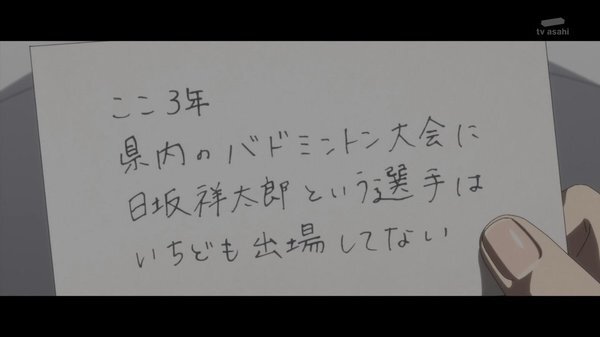 tv asahi
ここ3年
県内のバドミントン大会に
日坂祥太郎という選手は
いちども出場してない